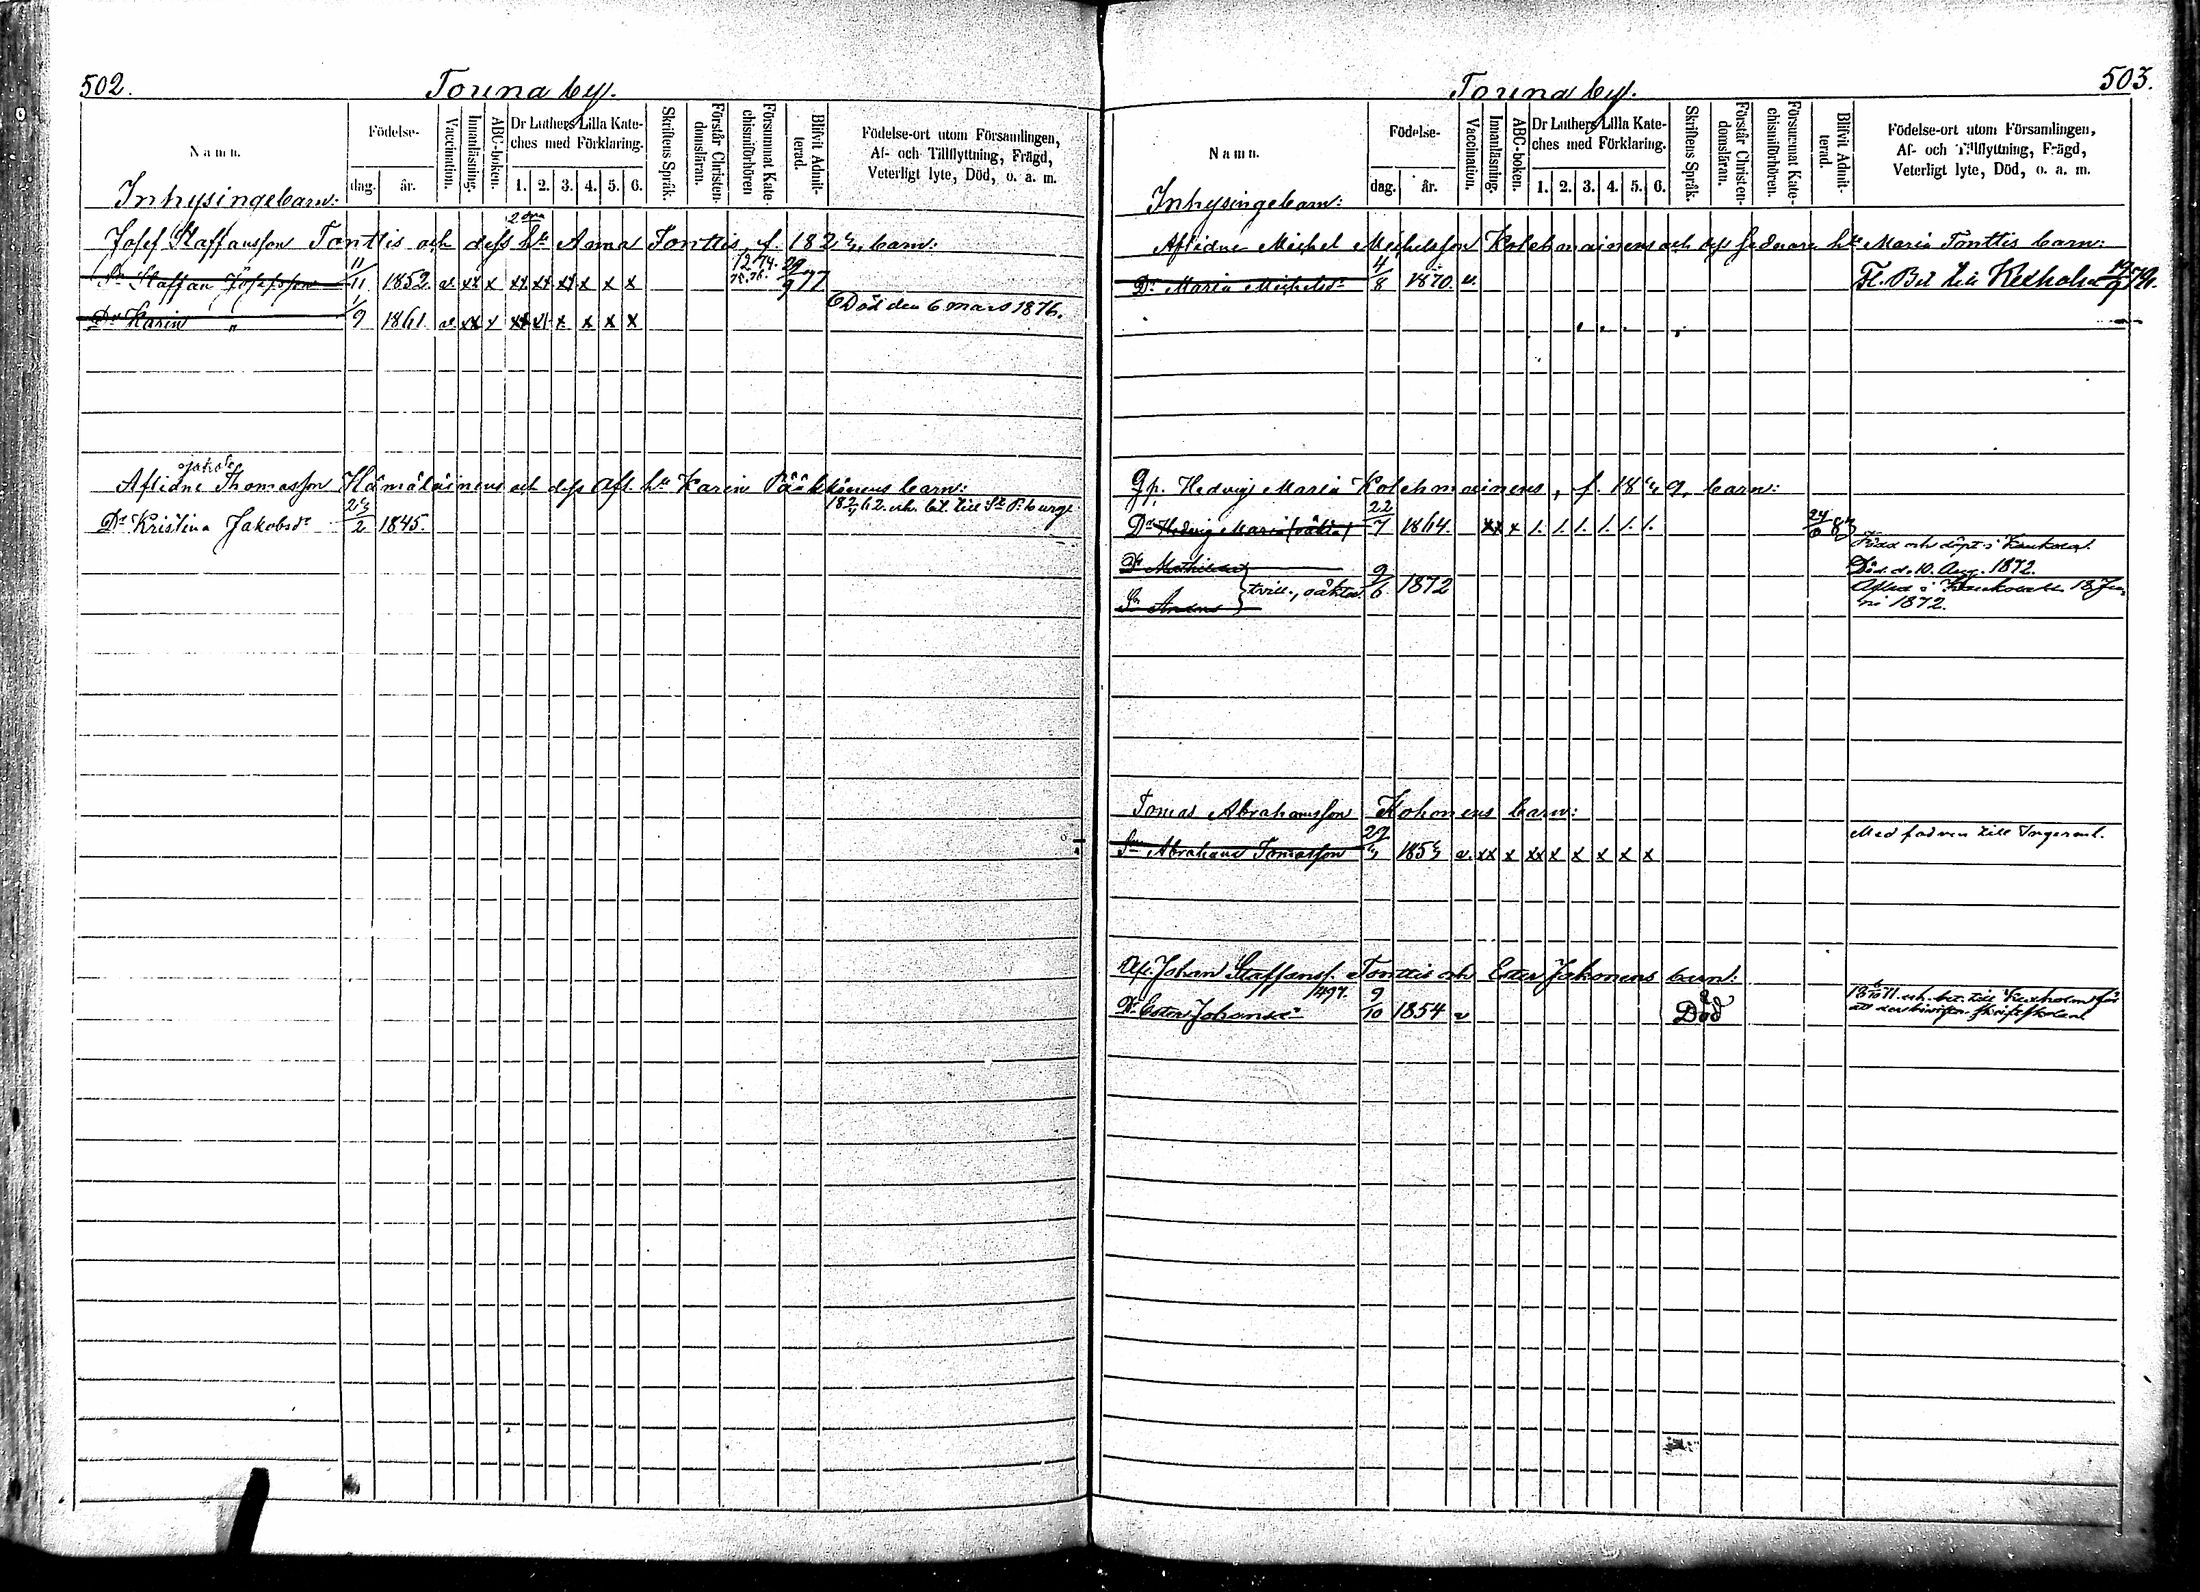 502.
Touna by.
Namn.
Födelse-
dag.
år.
Vaccination.
Innanläsning.
ABC-boken.
Dr Luthers Lilla Kate-
ches med Förklaring.
1. 2. 3. 4. 5. 6.
Skriftens Språk.
Förstår Christen-
domsläran.
Försummat Kate-
chismiförhören
Blifvit Admit-
terad.
Födelse-ort utom Församlingen,
Af- och Tillflyttning, Frägd,
Veterligt lyte, Död, o. a. m.
Inhysingebarn:
Josef Staffansson Tonttis och dess 2 dra h:u Anna Tonttis, f. barn:
Sn Staffan Josefsson 11/11 1852. v xx x xx xx xx x x x 29/9 77
Dr Karin " 1/9 1861. v xx x xx x x x x x Död den 6 mars 1876.
Aflidne Jakob Thomasson Hämäläinens och dess afl. hu Karin Pääkkönens barn:
Dr Kristina Jakobsdr 1845. 62 erh. bet. till St P:burg.
503.
Touna by.
Namn.
Födelse-
dag.
år.
Vaccination.
Innanläsning.
ABC-boken.
Dr Luthers Lilla Kate-
ches med Förklaring.
1. 2. 3. 4. 5. 6.
Skriftens Språk.
Förstår Christen-
domsläran.
Försummat Kate-
chismiförhören.
Blifvit Admit-
terad.
Födelse-ort utom Församlingen,
Af- och Tillflyttning, Frägd,
Veterligt lyte, Död, o. a. m.
Inhysingebarn:
Aflidne Michel Michelsson Kolehmainens och dess sednare hu Maria Tonttis barn:
Dr Maria Michelsdr 4/8 1870. v. Fl. Bet till Kexholm
Gp. Hedvig Maria Kolehmainens, f. barn:
Dr Hedvig Maria (oäkta) 22/7 1864. xx x 1. 1. 1. 1. 1. 1.
Född och döpt i Kaukola.
Dr Mathilda Död d. 10. Aug. 1872.
tvill., oäkta. 9/6 1872
Sn Anders Aflid i Kaukola 18 Ju-
ni 1872.
Tomas Abrahamsson Kohonens barn:
Sn Abraham Tomasson v. xx x xx x x x x x Med fadren till Ingerml.
Afl. Johan Staffanss. Tonttis och Ester Jakonens barn:
Dr Ester Johansdr 1497. 9/10 1854 v Död erh. bet. till Kexholm för
att der bivista skriftskolan